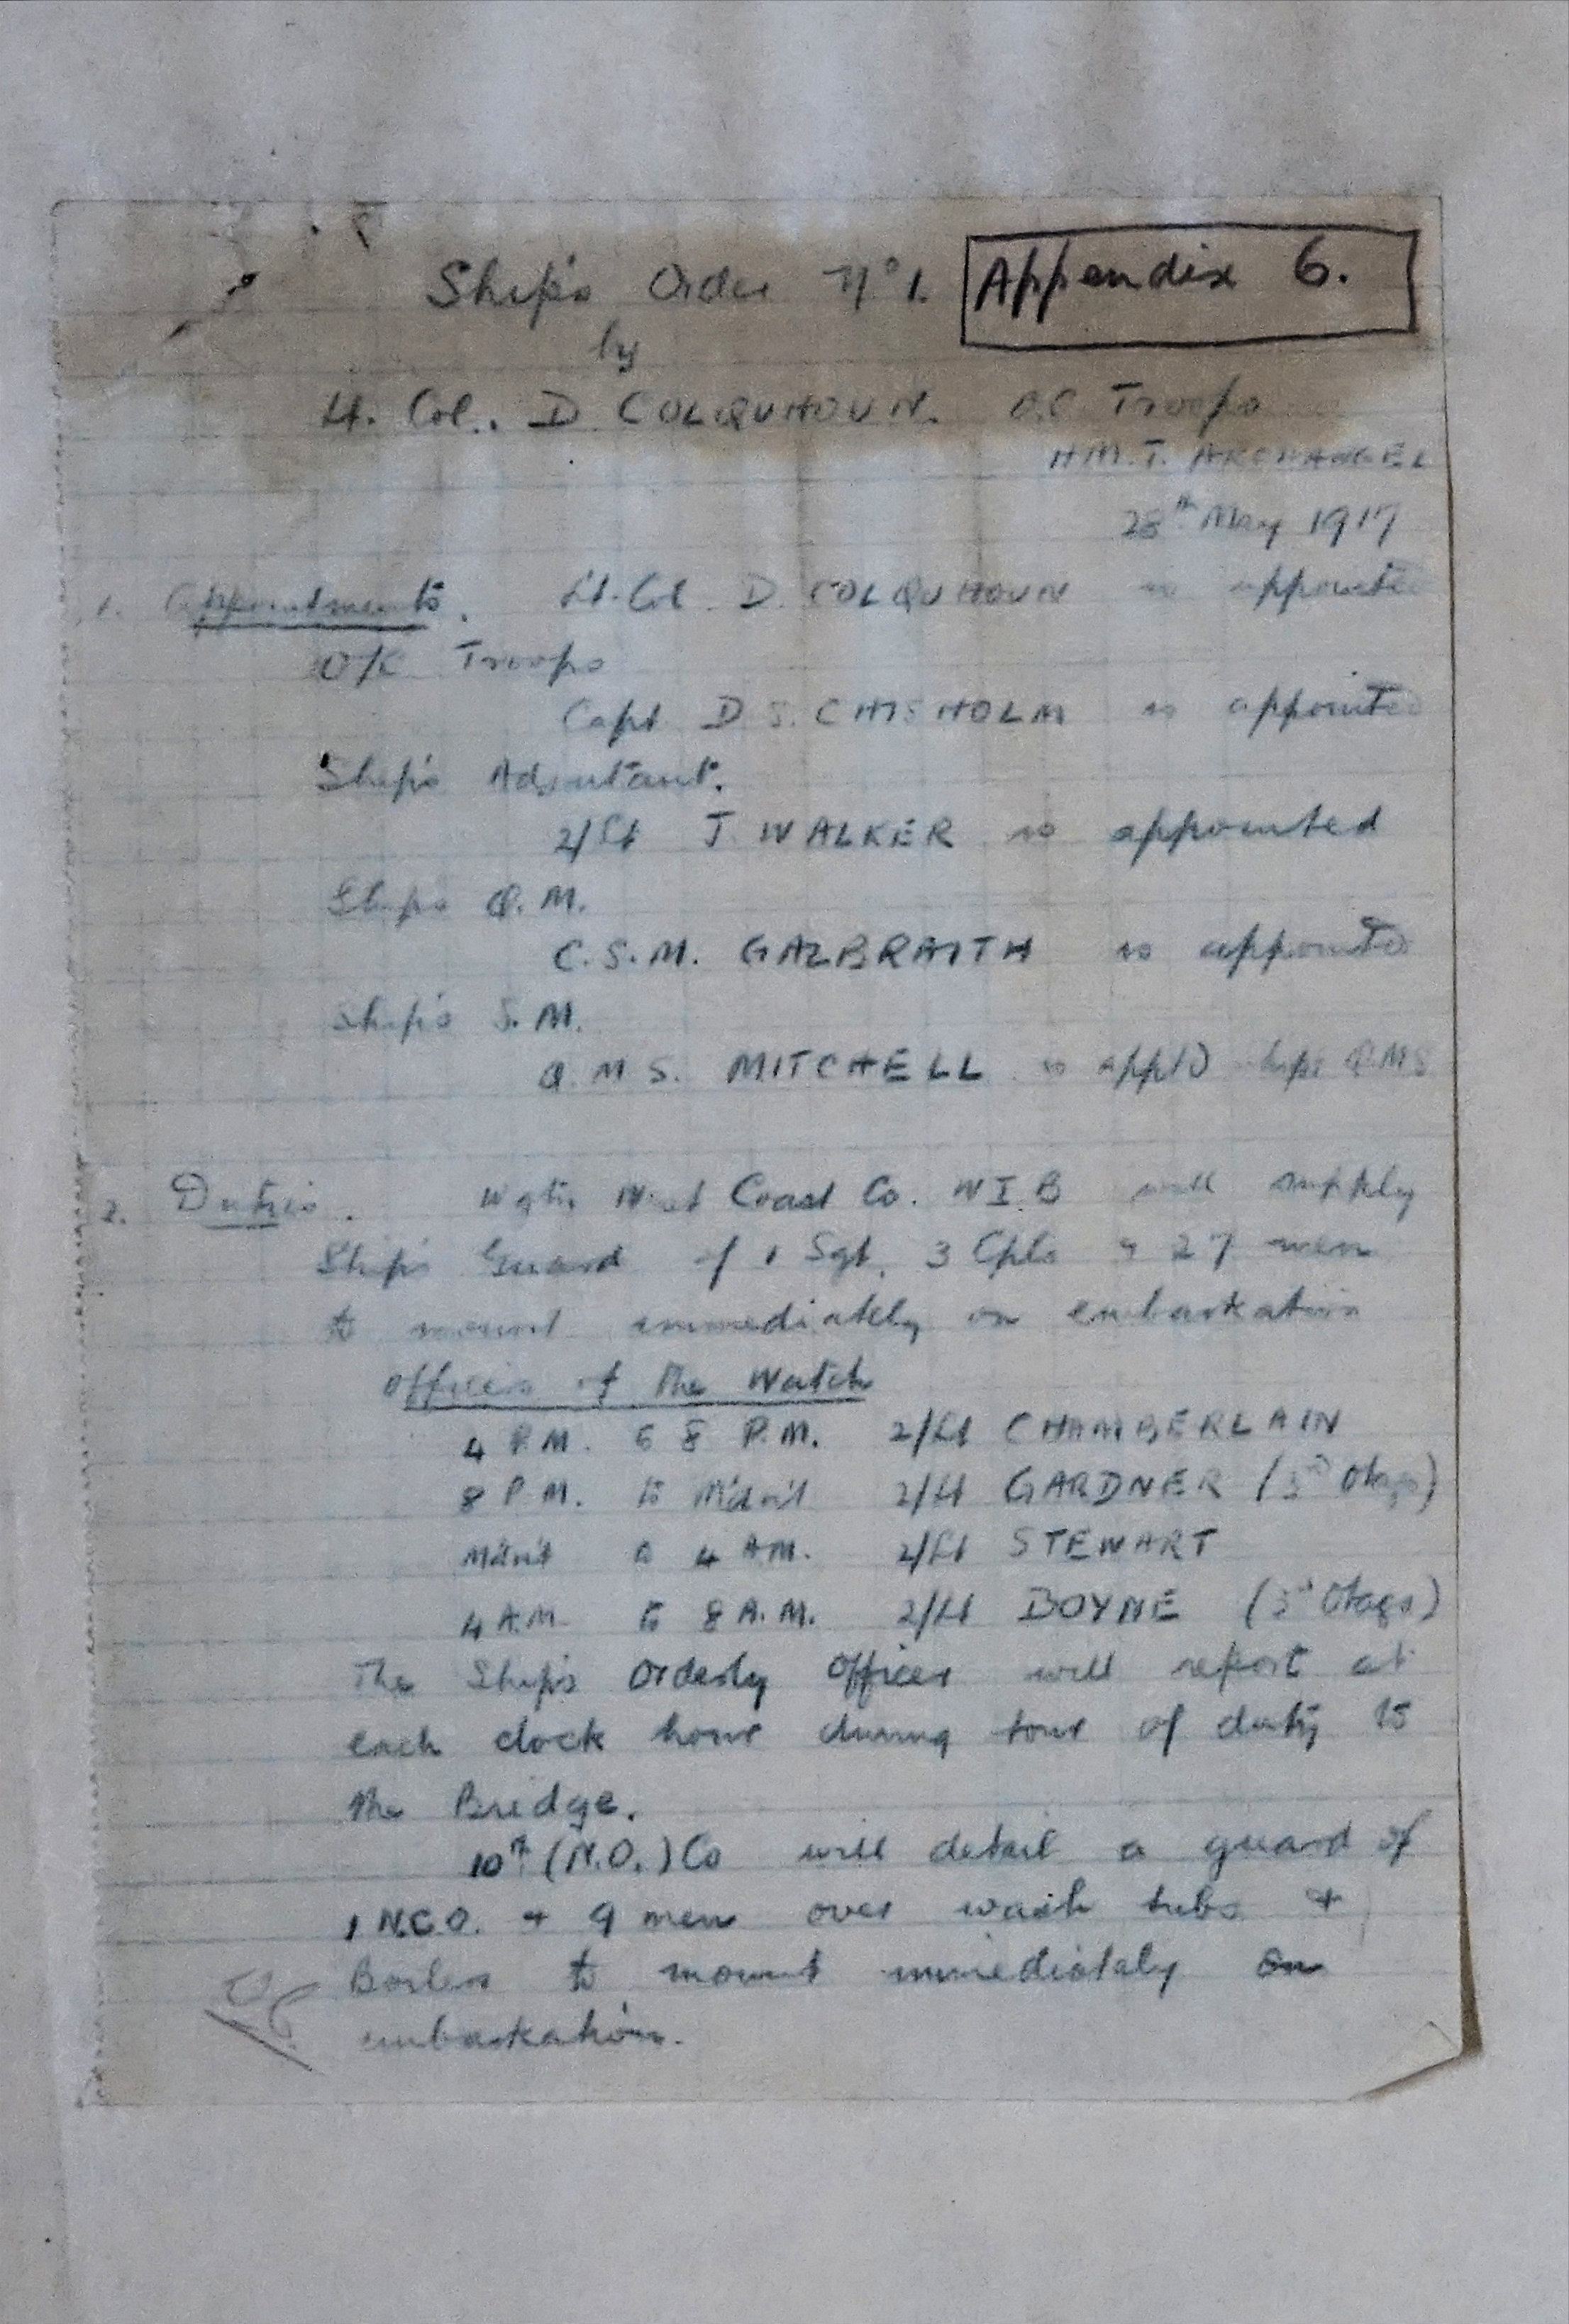 Ship's Order No 1. Appendix 6.
by
Lt. Col. D COLQUHOUN. O.C Troops
H.M.T. ARCHANGEL
28th May 1917
1. Appointments. Lt. Col. D. COLQUHOUN is appointed
O/C Troops
Capt D S. CHISHOLM is appointed
Ship's Adjutant.
2/Lt J WALKER is appointed
Ships Q.M.
C.S.M. GALBRAITH is appointed
Ship's S.M.
Q.M.S. MITCHELL is apptd ships QMS
2. Duties. Wgtn West Coast Co. WIB will supply
Ship's Guard of 1 Sgt. 3 Cpls & 27 men
to mount immediately on embarkation
Officers of the Watch
4 P.M. to 8 P.M. 2/Lt CHAMBERLAIN
8 P.M. to Midnit 2/Lt GARDNER (3rd Otago)
Midnit to 4 AM. 2/Lt STEWART
4 A.M. to 8 A.M. 2/Lt BOYNE (3rd Otago)
The Ship's Orderly Officer will report at
each clock hour during tour of duty to
the Bridge.
10th (N.O.) Co will detail a guard of
1 N.C.O. + 9 men over wash tubs +
Boilers to mount immediately on
embarkation.